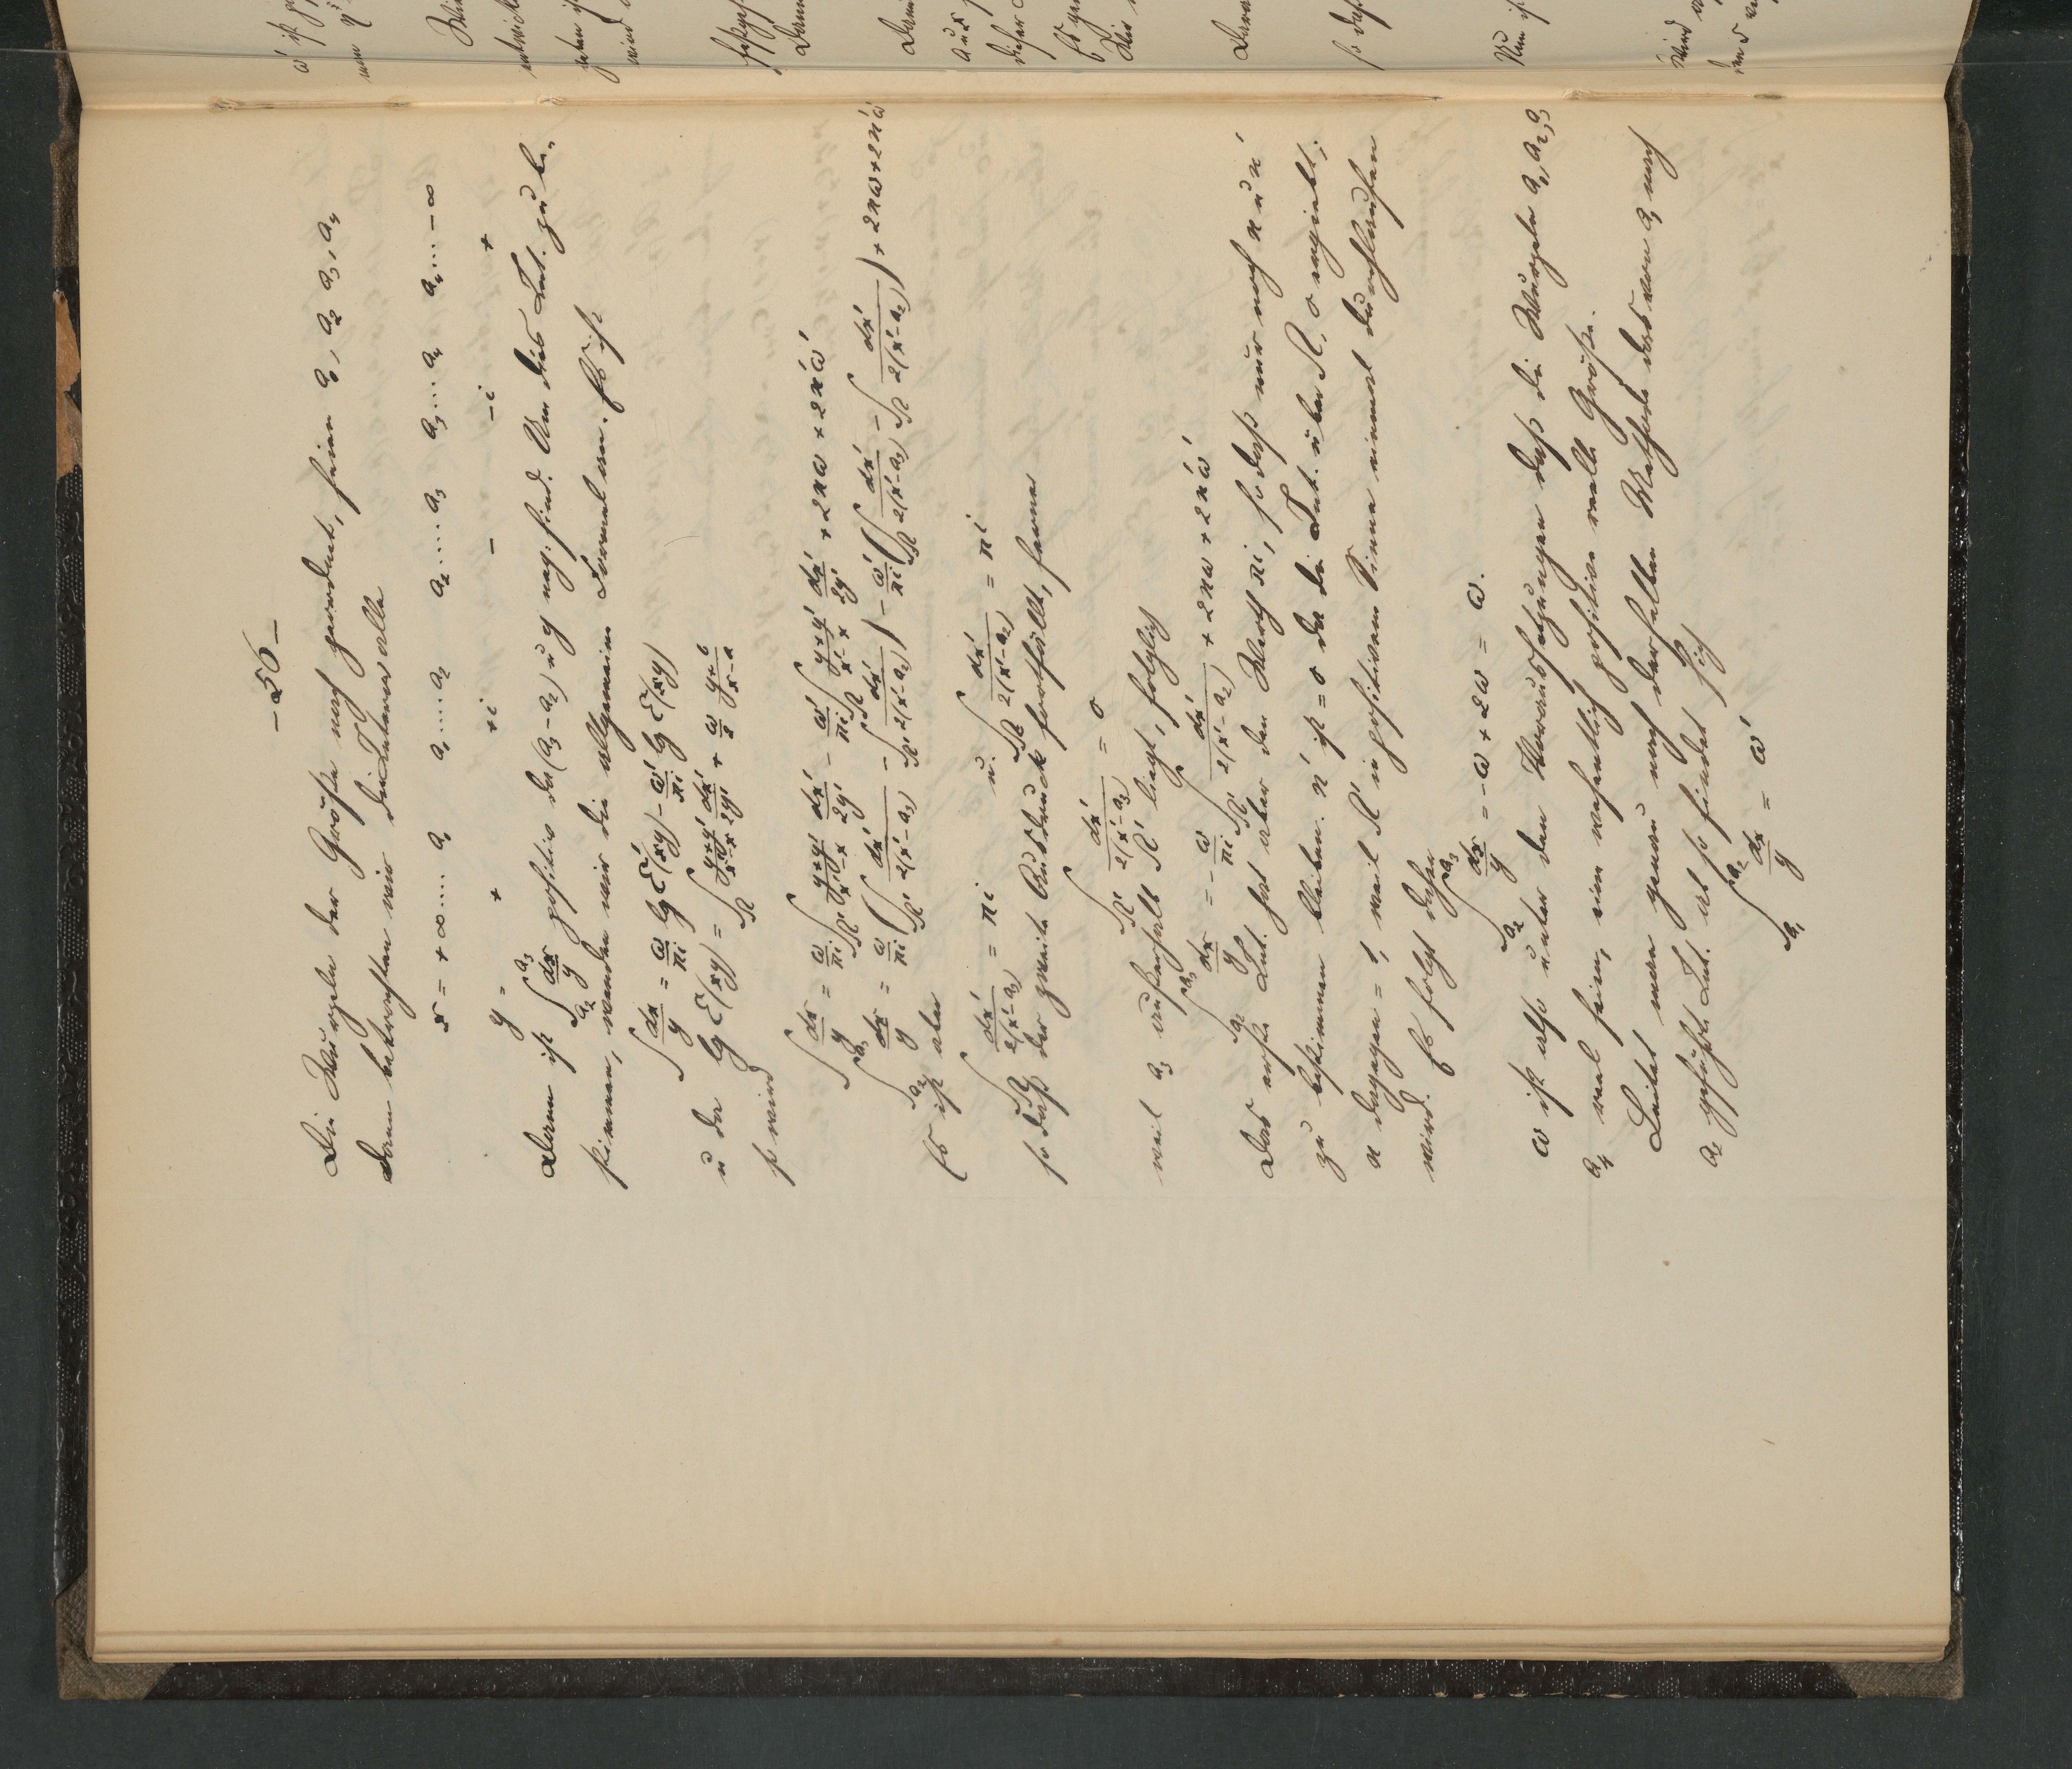 - 56 -
Die Wurzeln der Größe nach geordnet, seien a₁, a₂ a₃, a₄
Dann betrachten wir die Intervalle
x = +∞..... a₁ a₁..... a₂ a₂..... a₃ a₃... a₄ a₄... -∞
y = + +i - -i +
Dann ist ∫_{a₂}^{a₃} dx/y positiv da (a₃-a₂) u y neg. sind. Um dies Int. zu be-
stimmen, wenden wir die allgemeinen Formeln an. Es ist
∫ dx/y = ω/πi lg E'(xy) - ω'/πi lg E(xy)
u da lg E(xy) = ∫_{R} (y+y')/(x'-x) dx'/2y' + ω/2 (y+b)/(x-a)
so wird
∫ dx/y = ω/πi ∫_{R'} (y+y')/(x'-x) dx'/2y' - ω'/πi ∫_{R} (y+y')/(x'-x) dx'/2y' + 2nω + 2n'ω'
∫_{a₂}^{a₃} dx/y = ω/πi (∫_{R'} dx'/2(x'-a₃) - ∫_{R'} dx'/2(x'-a₂)) - ω'/πi (∫_{R} dx'/2(x'-a₃) - ∫_{R} dx'/2(x'-a₂)) + 2nω + 2n'ω'
Es ist aber
∫_{R} dx'/2(x'-a₃) = πi u. ∫_{R} dx'/2(x'-a₂) = πi
so daß der zweite Ausdruck fortfällt, ferner
∫_{R'} dx'/2(x'-a₃) = 0
weil a₃ außerhalb R' liegt, folglich
∫_{a₂}^{a₃} dx/y = - ω/πi ∫_{R'} dx'/2(x'-a₂) + 2nω + 2n'ω'
Das erste Int. hat aber den Werth πi, so daß nur noch n u n'
zu bestimmen bleiben. n' ist = 0 da die Int. über R, 0 ergiebt;
n dagegen = 1, weil R' in positivem Sinne einmal durchlaufen
wird. Es folgt daher
∫_{a₂}^{a₃} dx/y = -ω + 2ω = ω.
ω ist also unter den Voraussetzungen daß die Wurzeln a₁, a₂, a₃
a₄ reel seien, eine wesentlich positive reelle Größe.
Leitet man genau nach derselben Methode das von a₁ nach
a₂ geführte Int. ab so findet sich
∫_{a₁}^{a₂} dx/y = ω'